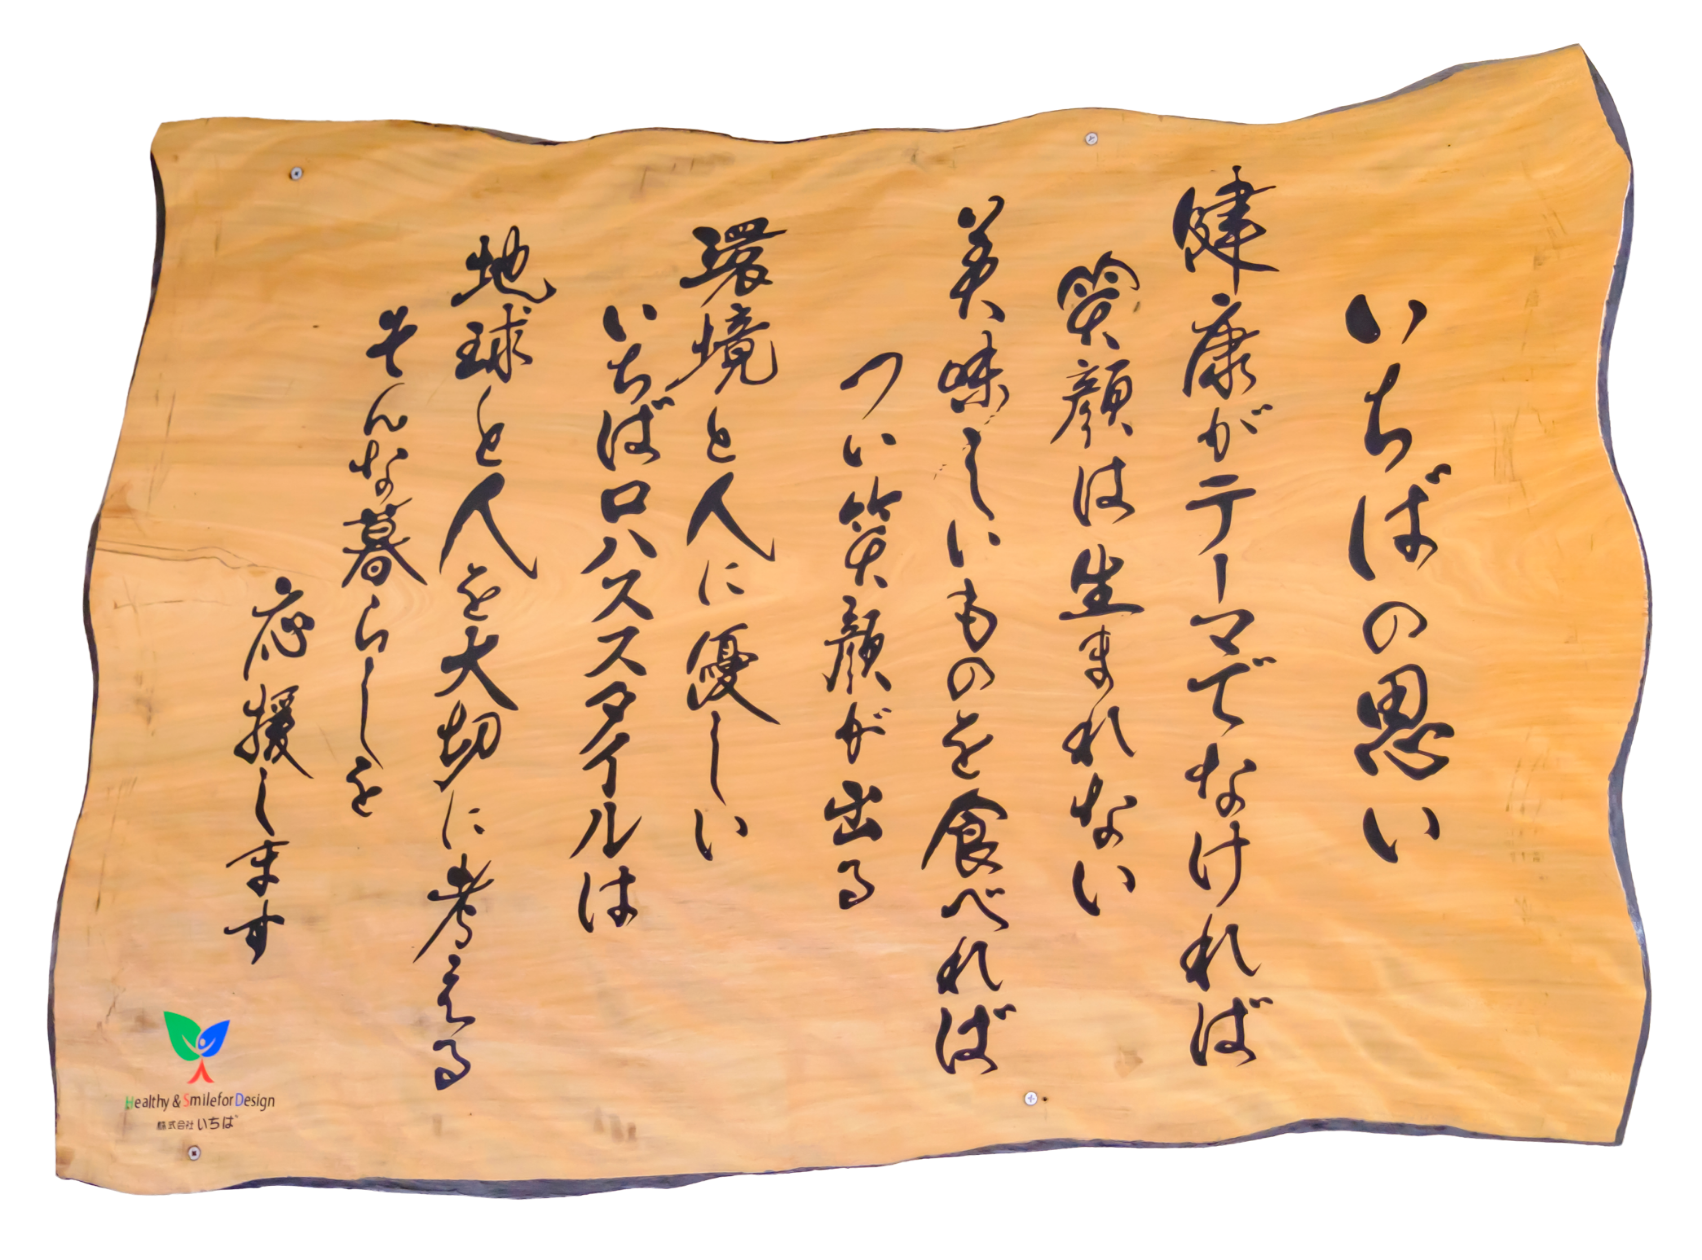 いちばの思い
健康がテーマでなければ
笑顔は生まれない
美味しいものを食べれば
つい笑顔が出る
環境と人に優しい
いちばロハススタイルは
地球と人を大切に考える
そんな暮らしを
応援します
Healthy & SmileforDesign
株式会社いちば